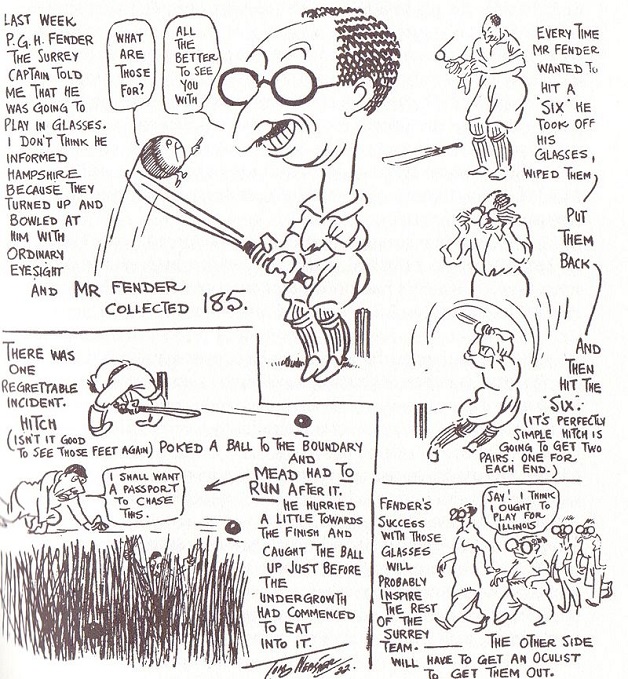 LAST WEEK
P.G.H. FENDER
THE SURREY
CAPTAIN TOLD
ME THAT HE
WAS GOING TO
PLAY IN GLASSES.
I DON'T THINK HE
INFORMED
HAMPSHIRE
BECAUSE THEY
TURNED UP AND
BOWLED AT
HIM WITH
ORDINARY
EYESIGHT
AND MR FENDER
COLLECTED 185.
WHAT
ARE
THOSE
FOR?
ALL
THE
BETTER
TO SEE
YOU
WITH
EVERY TIME
MR FENDER
WANTED TO
HIT A
"SIX" HE
TOOK OFF
HIS
GLASSES,
WIPED THEM,
PUT
THEM
BACK
AND
THEN
HIT THE
"SIX".
(IT'S PERFECTLY
SIMPLE HITCH IS
GOING TO GET TWO
PAIRS. ONE FOR
EACH END.)
THERE WAS
ONE
REGRETTABLE
INCIDENT.
HITCH
(ISN'T IT GOOD
TO SEE THOSE FEET AGAIN) POKED A BALL TO THE BOUNDARY
AND
MEAD HAD TO
RUN AFTER IT.
HE HURRIED
A LITTLE TOWARDS
THE FINISH AND
CAUGHT THE BALL
UP JUST BEFORE
THE
UNDERGROWTH
HAD COMMENCED
TO EAT
INTO IT.
I SHALL WANT
A PASSPORT
TO CHASE
THIS.
TOM WEBSTER
22.
FENDER'S
SUCCESS
WITH THOSE
GLASSES
WILL
PROBABLY
INSPIRE
THE REST
OF THE
SURREY
TEAM.
SAY! I THINK
I OUGHT TO
PLAY FOR
ILLINOIS
THE OTHER SIDE
WILL HAVE TO GET AN OCULIST
TO GET THEM OUT.